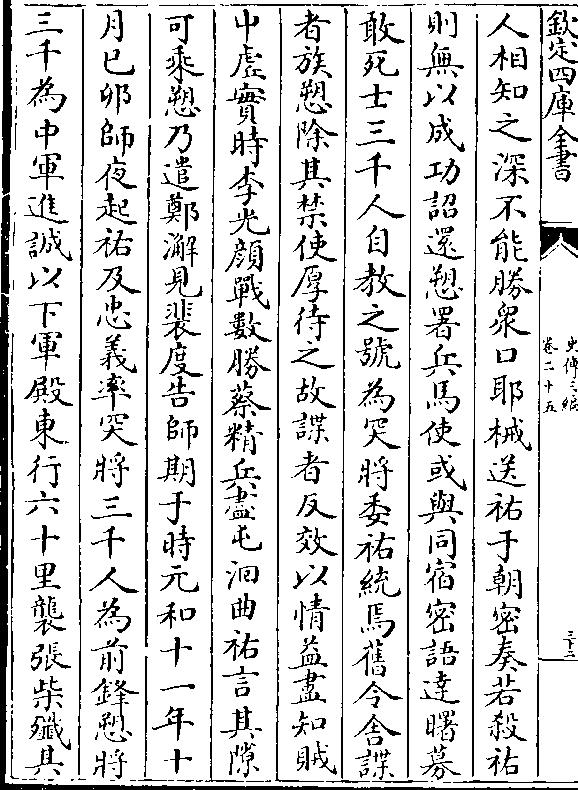 欽定四庫全書
史傳三編
卷二十五
三十二
人相知之深不能勝衆口耶械送祐于朝密奏若殺祐
則無以成功詔還愬署兵馬使或與同宿密語達曙募
敢死士三千人自教之號為突將委祐統焉舊令舍諜
者族愬除其禁使厚待之故諜者反效以情益盡知賊
中虚實時李光顔戰數勝蔡精兵盡屯洄曲祐言其隙
可乘愬乃遣鄭澥見裴度告師期于時元和十一年十
月已卯師夜起祐及忠義率突將三千人為前鋒愬將
三千為中軍進誠以下軍殿東行六十里襲張柴殱其